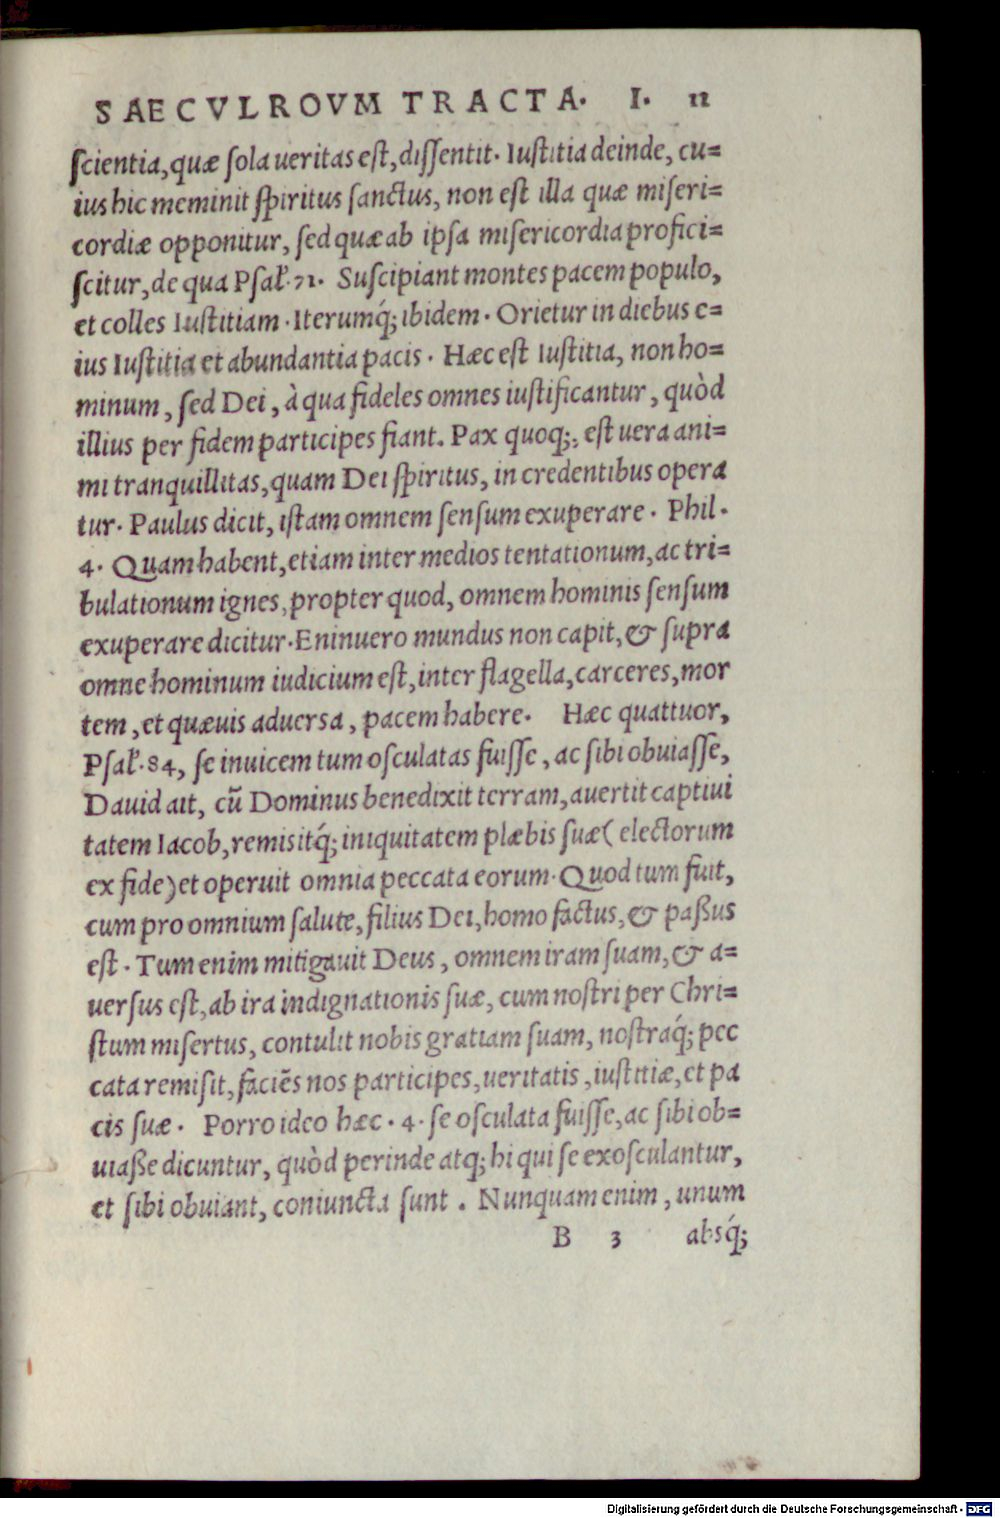 SAECVLROVM TRACTA. I. 11
ſcientia, quæ ſola ueritas eſt, diſſentit. Iuſtitia deinde, cu=
ius hic meminit ſpiritus ſanctus, non eſt illa quæ miſeri=
cordiæ opponitur, ſed quæ ab ipſa miſericordia profici=
ſcitur, de qua Pſal̕. 71. Suſcipiant montes pacem populo,
et colles Iuſtitiam. Iterumq́; ibidem. Orietur in diebus e=
ius Iuſtitia et abundantia pacis. Hæc eſt Iuſtitia, non ho=
minum, ſed Dei, à qua fideles omnes iuſtificantur, quòd
illius per fidem participes fiant. Pax quoq;, eſt uera ani=
mi tranquillitas, quam Dei ſpiritus, in credentibus opera
tur. Paulus dicit, iſtam omnem ſenſum exuperare. Phil.
4. Quam habent, etiam inter medios tentationum, ac tri=
bulationum ignes, propter quod, omnem hominis ſenſum
exuperare dicitur. Eninuero mundus non capit, & ſupra
omne hominum iudicium eſt, inter flagella, carceres, mor
tem, et quæuis aduersa, pacem habere. Hæc quattuor,
Pſal̕. 84, ſe inuicem tum oſculatas fuiſſe, ac ſibi obuiaſſe,
Dauid ait, cū Dominus benedixit terram, auertit captiui
tatem Iacob, remisitq́; iniquitatem plæbis ſuæ ( electorum
ex fide) et operuit omnia peccata eorum. Quod tum fuit,
cum pro omnium ſalute, filius Dei, homo factus, & paßus
eſt. Tum enim mitigauit Deus, omnem iram ſuam, & a=
uersus eſt, ab ira indignationis ſuæ, cum noſtri per Chri=
ſtum miſertus, contulit nobis gratiam ſuam, noſtraq́; pec
cata remiſit, faciēs nos participes, ueritatis, iuſtitiæ, et pa
cis ſuæ. Porro ideo hæc. 4. ſe oſculata fuiſſe, ac ſibi ob=
uiaße dicuntur, quòd perinde atq; hi qui ſe exoſculantur,
et ſibi obuiant, coniuncta ſunt. Nunquam enim, unum
B 3 absq́;
Digitalisierung gefördert durch die Deutsche Forschungsgemeinschaft - DFG